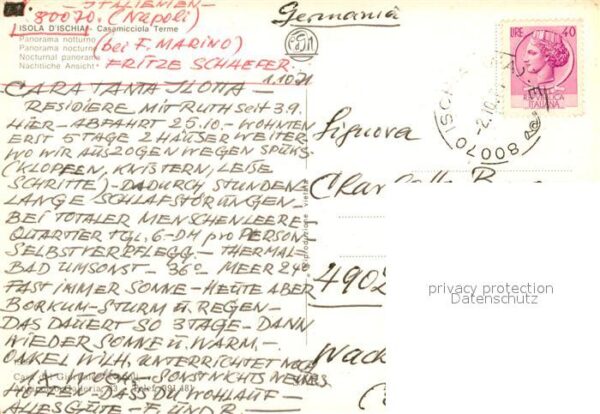 ITALIENEN
80070. (Napoli)
ISOLA D'ISCHIA - Casamicciola Terme
Panorama notturno
Panorama nocturne
Nocturnal panorama
Nächtliche Ansicht
(bei F. MARINO)
FRITZE SCHAEFER.
1.10.71
CARA TANTA ILOTTA —
RESIDIERE MIT RUTH SEIT 3.9.
HIER — ABFAHRT 25.10. — WOHNTEN
ERST 5 TAGE 2 HÄUSER WEITER
WO WIR AUSZOGEN WEGEN SPUKS
(KLOPFEN, KNISTERN, LEISE
SCHRITTE) — DADURCH STUNDEN
LANGE SCHLAFSTÖRUNGEN —
BEI TOTALER MENSCHENLEERE —
QUARTIER TGL. 6.- DM pro PERSON —
SELBSTVERPFLEGG — THERMAL-
BAD UMSONST — 36° MEER 24°
FAST IMMER SONNE — HEUTE ABER
BORKUM — STURM u. REGEN —
DAS DAUERT SO 3 TAGE — DANN
WIEDER SONNE u. WARM. —
ONKEL WILH. UNTERRICHTET NOCH
SONST NICHTS NEUES
HOFFEN — DASS DU WOHLAUF —
ALLES GUTE — F. UND R.
Germania
Signora
Charlotte
4902
riproduzione vietata
LIRE 40
REPUBBLICA
ITALIANA
80070 ISCHIA
privacy protection
Datenschutz